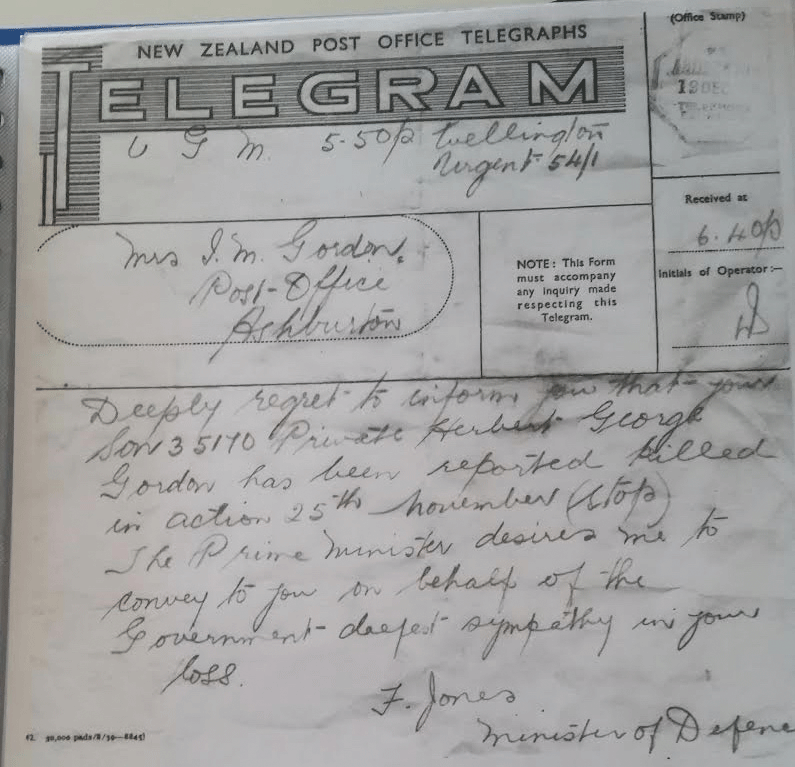 NEW ZEALAND POST OFFICE TELEGRAPHS
TELEGRAM
(Office Stamp)
18 DEC
U G M. 5-50p Wellington
Urgent 54/1
Received at
6.40p
Initials of Operator:—
Mrs I. M. Gordon,
Post-Office
Ashburton
NOTE: This Form
must accompany
any inquiry made
respecting this
Telegram.
Deeply regret to inform you that your
Son 35170 Private Herbert George
Gordon has been reported killed
in action 25th November (stop)
The Prime Minister desires me to
convey to you on behalf of the
Government deepest sympathy in your
loss.
F. Jones
Minister of Defenc
30,000 pads/8/39—8845)